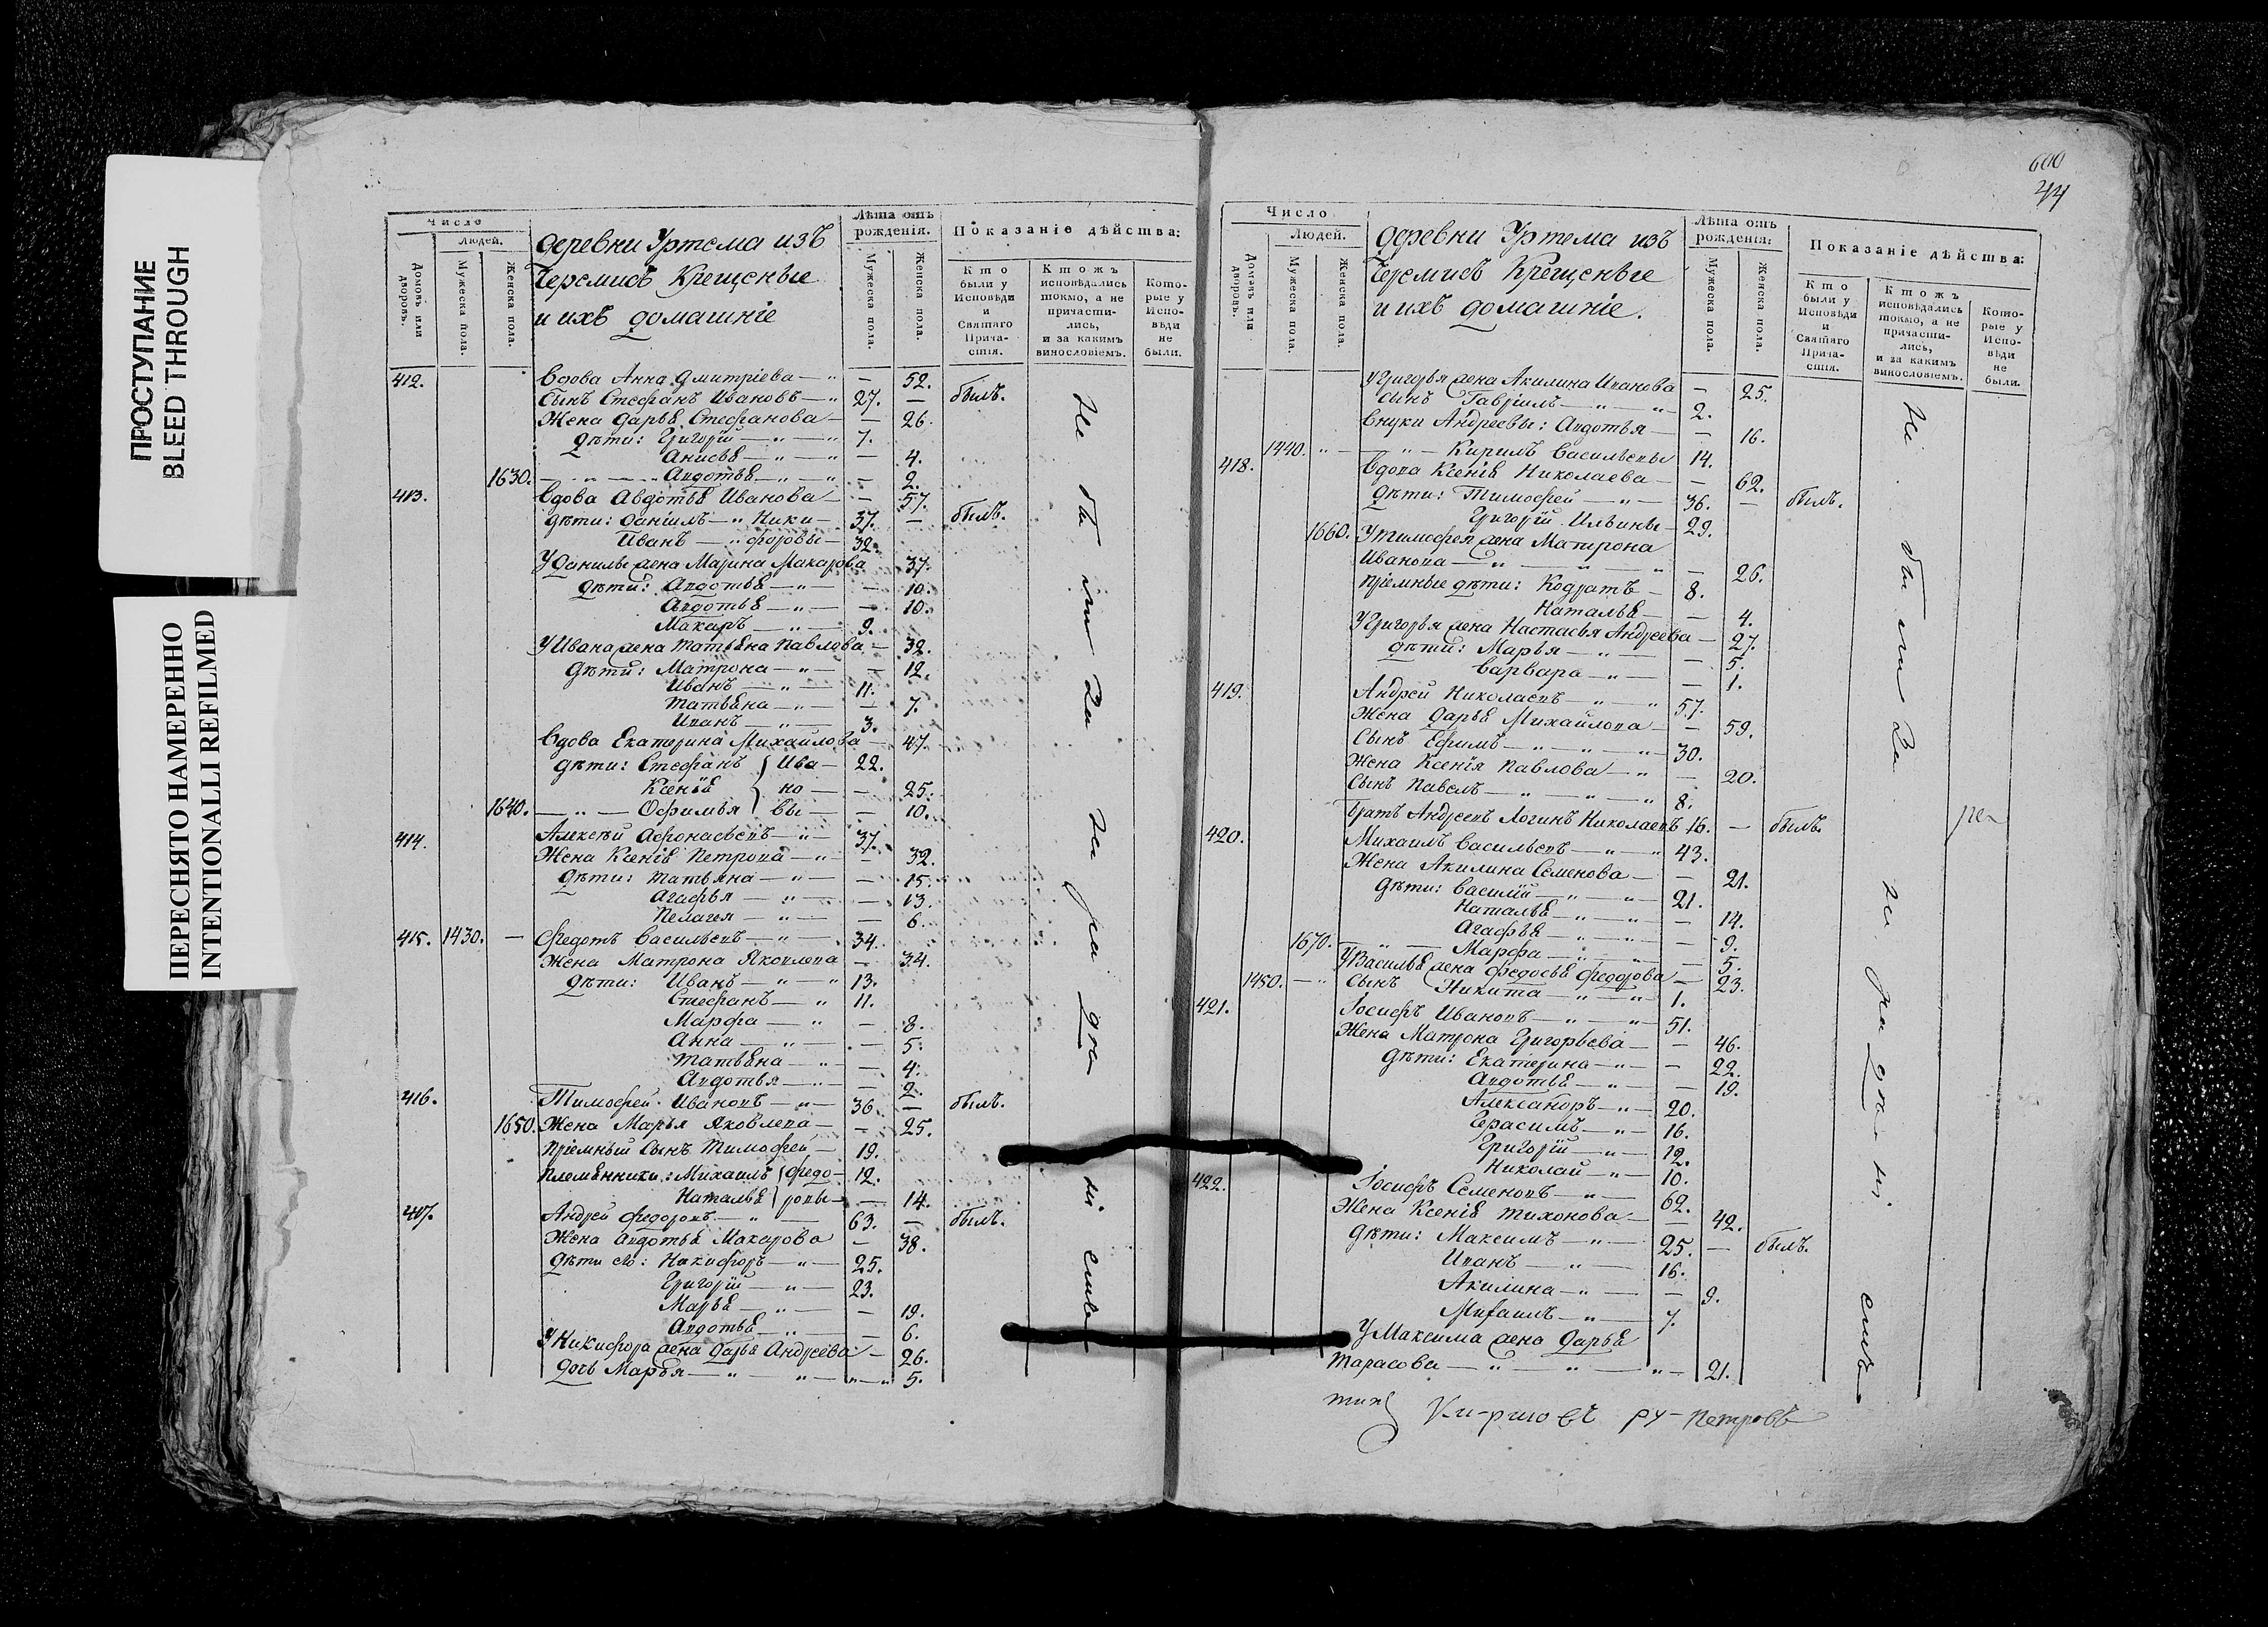 ПРОСТУПАНИЕ
BLEED THROUGH
ПЕРЕСНЯТО НАМЕРЕННО
INTENTIONALLI REFILMED
Число
Людей.
Домовъ или дворовъ.
Мужеска пола.
Женска пола.
деревни Уртема изъ
Черемисъ Крещеные
и ихъ домашніе
Лѣта отъ рожденія.
Мужеска пола.
Женска пола.
Показаніе дѣйства:
Кто были у Исповѣди и Святаго Причастія.
Ктожъ исповѣдались токмо, а не причастились, и за какимъ винословіемъ.
Которые у Исповѣди не были.
412. Вдова Анна Дмитріева — 52.
Сынъ Стефанъ Ивановъ 27. — былъ.
Жена Дарья Стефанова — 26.
дѣти: Григорій 7.
Анисья — 4.
1630. Авдотья — 2.
413. Вдова Авдотья Иванова — 57.
дѣти: Даніилъ Ники- 37. — былъ.
Иванъ форовы 32.
У Данилы жена Марина Макарова 37.
дѣти: Авдотья — 10.
Авдотья — 10.
Макаръ 9.
У Ивана жена Татьяна Павлова — 32.
дѣти: Матрона — 12.
Иванъ 11.
Татьяна — 7.
Иванъ 3.
Вдова Екатерина Михайлова — 47.
дѣти: Стефанъ Ива- 22.
Ксенія но — 25.
1640. Офимья вы — 10.
414. Алексѣй Афонасьевъ 37.
Жена Ксенія Петрова — 32.
дѣти: Татьяна — 15.
Агафья — 13.
Пелагея — 6.
415. 1430. — Федотъ Васильевъ 34.
Жена Матрона Яковлева — 34.
дѣти: Иванъ 13.
Стефанъ 11.
Марфа — 8.
Анна — 5.
Татьяна — 4.
Авдотья — 2.
416. Тимофей Ивановъ 36. — былъ.
1650. Жена Марья Яковлева — 25.
Пріемный сынъ Тимофей 19.
Племянники: Михаилъ Федо- 12.
Наталья ровы — 14.
417. Андрей Федоровъ 63. — былъ.
Жена Авдотья Макарова — 38.
дѣти ево: Никифоръ 25.
Григорій 23.
Марья — 19.
Авдотья — 6.
У Никифора жена Дарья Андреева — 26.
дочь Марья 5.
600
44
Число
Людей.
Домовъ или дворовъ.
Мужеска пола.
Женска пола.
деревни Уртема изъ
Черемисъ Крещеные
и ихъ домашніе.
Лѣта отъ рожденія:
Мужеска пола.
Женска пола.
Показаніе дѣйства:
Кто были у Исповѣди и Святаго Причастія.
Ктожъ исповѣдались токмо, а не причастились, и за какимъ винословіемъ.
Которые у Исповѣди не были.
У Григорья жена Акилина Иванова — 25.
сынъ Гавріилъ 2.
Внуки Андреевы: Авдотья — 16.
1440. Кирилъ Васильевы 14.
418. Вдова Ксенія Николаева — 62.
дѣти: Тимофей 36. — былъ.
Григорій Ильины 29.
1660. У Тимофея жена Матрона
Иванова — 26.
Пріемные дѣти: Кодратъ 8.
Наталья — 4.
У Григорья жена Настасья Андреева — 27.
дѣти: Марья — 5.
Варвара — 1.
419. Андрей Николаевъ 57.
Жена Дарья Михайлова — 59.
Сынъ Ефимъ 30.
Жена Ксенія Павлова — 20.
Сынъ Павелъ 8.
Братъ Андреевъ Логинъ Николаевъ 16. — былъ.
420. Михаилъ Васильевъ 43.
Жена Акилина Семенова — 21.
дѣти: Василій 21.
Наталья — 14.
Агафья — 9.
1670. Марфа — 5.
У Василья жена Федосья Федорова — 23.
1450. Сынъ Никита 1.
421. Іосифъ Ивановъ 51.
Жена Матрона Григорьева — 46.
дѣти: Екатерина — 22.
Авдотья — 19.
Александръ 20.
Герасимъ 16.
Григорій 12.
Николай 10.
422. Іосифъ Семеновъ 62.
Жена Ксенія Тихонова — 42.
дѣти: Максимъ 25. — былъ.
Иванъ 16.
Акилина — 9.
Михаилъ 7.
У Максима жена Дарья
Тарасова 21.
Петровъ